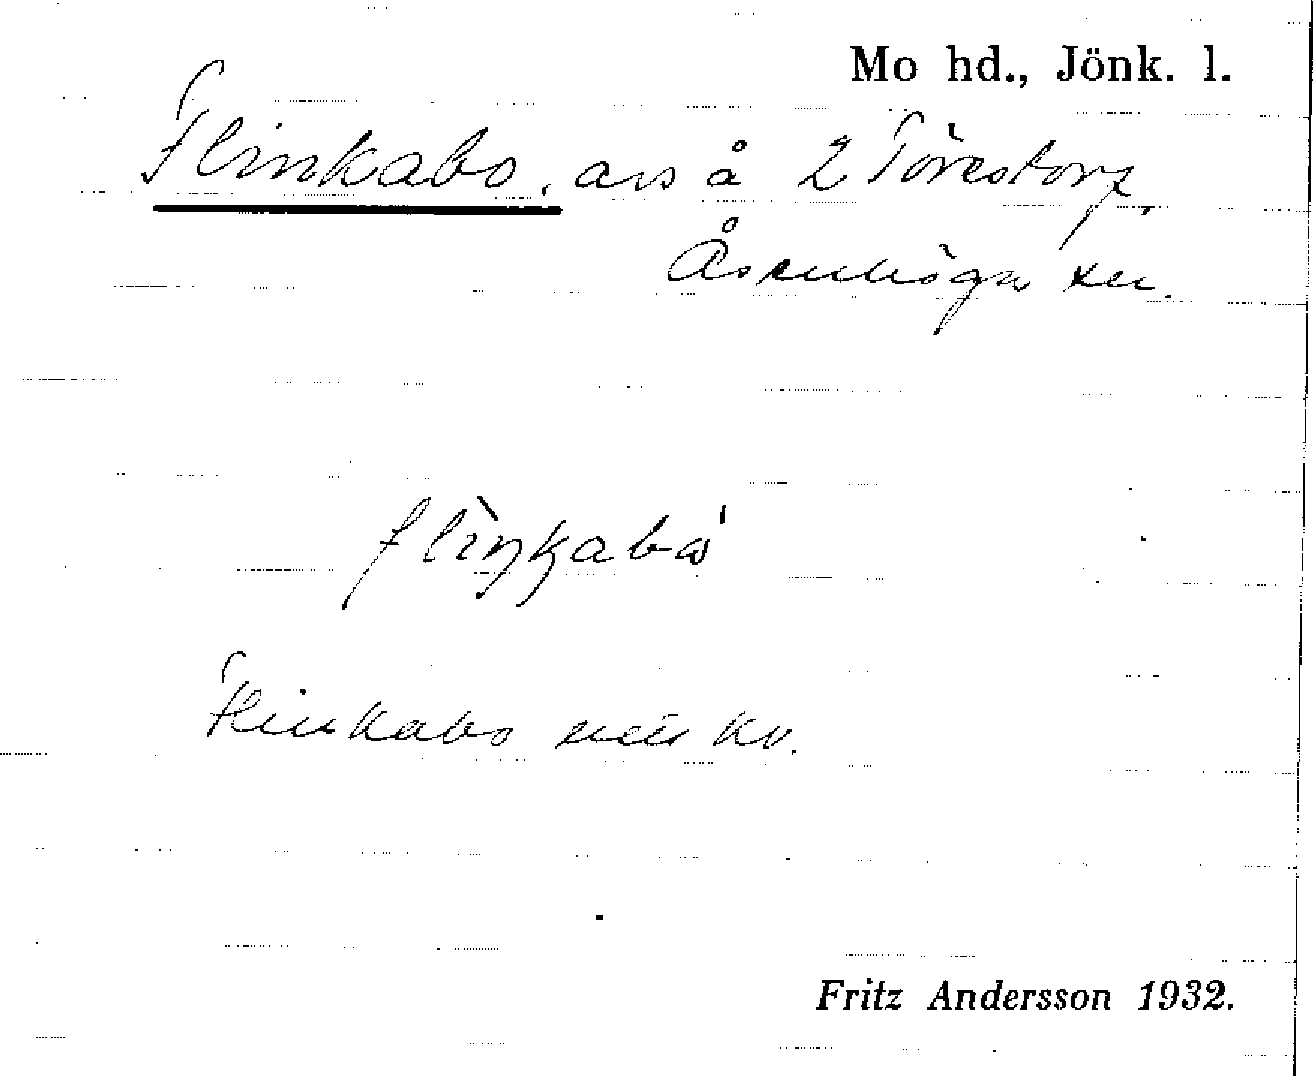 Mo hd., Jönk. l.
Flinkabo, avs å 2 Törestorp,
Åsenhöga sn.
flìŋkabω'
Flinkabo
Fritz Andersson 1932.